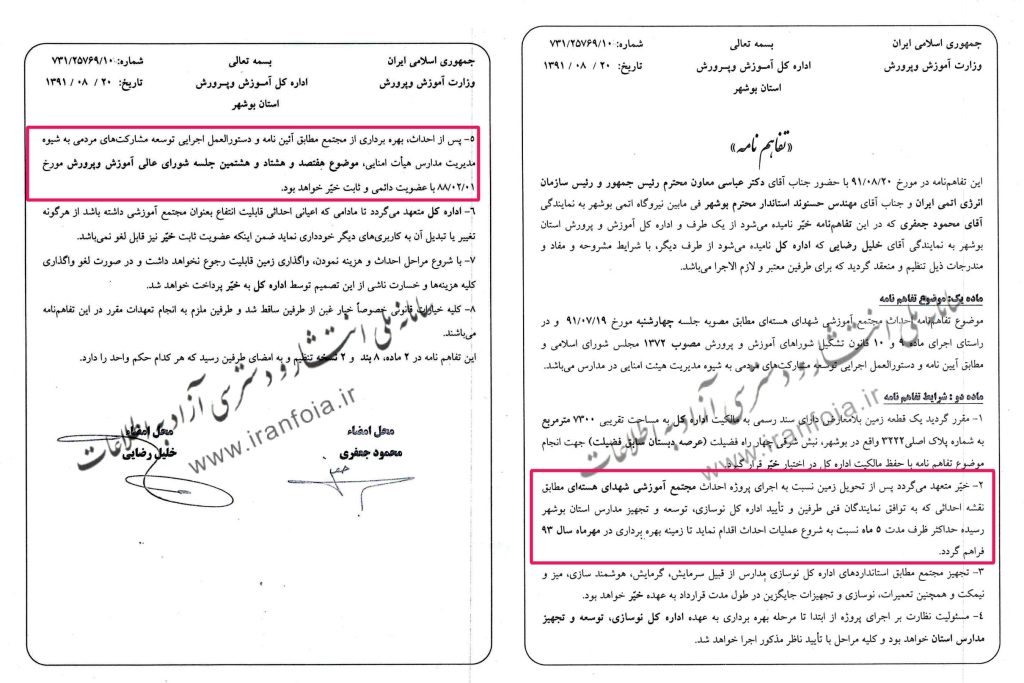 جمهوری اسلامی ایران
وزارت آموزش وپرورش
بسمه تعالی
اداره کل آمـوزش وپـرورش
استان بوشهر
شماره: ۷۳۱/۲۵۷۶۹/۱۰
تاریخ: ۲۰ / ۰۸ / ۱۳۹۱
«تفاهم نامه»
این تفاهم‌نامه در مورخ ۹۱/۰۸/۲۰ با حضور جناب آقای دکتر عباسی معاون محترم رئیس جمهور و رئیس سازمان
انرژی اتمی ایران و جناب آقای مهندس حسنوند استاندار محترم بوشهر فی مابین نیروگاه اتمی بوشهر به نمایندگی
آقای محمود جعفری که در این تفاهم‌نامه خیّر نامیده می‌شود از یک طرف و اداره کل آموزش و پرورش استان
بوشهر به نمایندگی آقای خلیل رضایی که اداره کل نامیده می‌شود از طرف دیگر، با شرایط مشروحه و مفاد و
مندرجات ذیل تنظیم و منعقد گردید که برای طرفین معتبر و لازم الاجرا می‌باشد.
ماده یک: موضوع تفاهم نامه
موضوع تفاهم‌نامه احداث مجتمع آموزشی شهدای هسته‌ای مطابق مصوبه جلسه چهارشنبه مورخ ۹۱/۰۷/۱۹ و در
راستای اجرای ماده ۹ و ۱۰ قانون تشکیل شوراهای آموزش و پرورش مصوب ۱۳۷۲ مجلس شورای اسلامی و
مطابق آیین نامه و دستورالعمل اجرایی توسعه مشارکت‌های مردمی به شیوه مدیریت هیئت امنایی در مدارس می‌باشد.
ماده دو: شرایط تفاهم نامه
۱- مقرر گردید یک قطعه زمین بلامعارض دارای سند رسمی به مالکیت اداره کل به مساحت تقریبی ۷۳۰۰ مترمربع
به شماره پلاک اصلی ۳۲۲۲ واقع در بوشهر، نبش شرقی چهار راه فضیلت (عرصه دبستان سابق فضیلت) جهت انجام
موضوع تفاهم نامه با حفظ مالکیت اداره کل در اختیار خیّر قرار گیرد.
۲- خیّر متعهد می‌گردد پس از تحویل زمین نسبت به اجرای پروژه احداث مجتمع آموزشی شهدای هسته‌ای مطابق
نقشه احداثی که به توافق نمایندگان فنی طرفین و تأیید اداره کل نوسازی، توسعه و تجهیز مدارس استان بوشهر
رسیده حداکثر ظرف مدت ۵ ماه نسبت به شروع عملیات احداث اقدام نماید تا زمینه بهره برداری در مهرماه سال ۹۳
فراهم گردد.
۳- تجهیز مجتمع مطابق استانداردهای اداره کل نوسازی مدارس از قبیل سرمایش، گرمایش، هوشمند سازی، میز و
نیمکت و همچنین تعمیرات، نوسازی و تجهیزات جایگزین در طول مدت قرارداد به عهده خیّر خواهد بود.
۴- مسئولیت نظارت بر اجرای پروژه از ابتدا تا مرحله بهره برداری به عهده اداره کل نوسازی، توسعه و تجهیز
مدارس استان خواهد بود و کلیه مراحل با تأیید ناظر مذکور اجرا خواهد شد.
سامانه ملی انتشار و دسترسی آزاد به اطلاعات
www.iranfoia.ir
جمهوری اسلامی ایران
وزارت آموزش وپرورش
بسمه تعالی
اداره کل آمـوزش وپـرورش
استان بوشهر
شماره: ۷۳۱/۲۵۷۶۹/۱۰
تاریخ: ۲۰ / ۰۸ / ۱۳۹۱
۵- پس از احداث، بهره برداری از مجتمع مطابق آئین نامه و دستورالعمل اجرایی توسعه مشارکت‌های مردمی به شیوه
مدیریت مدارس هیأت امنایی، موضوع هفتصد و هشتاد و هشتمین جلسه شورای عالی آموزش وپرورش مورخ
۸۸/۰۲/۰۱ با عضویت دائمی و ثابت خیّر خواهد بود.
۶- اداره کل متعهد می‌گردد تا مادامی که اعیانی احداثی قابلیت انتفاع بعنوان مجتمع آموزشی داشته باشد از هرگونه
تغییر یا تبدیل آن به کاربری‌های دیگر خودداری نماید ضمن اینکه عضویت ثابت خیّر نیز قابل لغو نمی‌باشد.
۷- با شروع مراحل احداث و هزینه نمودن، واگذاری زمین قابلیت رجوع نخواهد داشت و در صورت لغو واگذاری
کلیه هزینه‌ها و خسارت ناشی از این تصمیم توسط اداره کل به خیّر پرداخت خواهد شد.
۸- کلیه خیارات قانونی خصوصاً خیار غبن از طرفین ساقط شد و طرفین ملزم به انجام تعهدات مقرر در این تفاهم‌نامه
می‌باشند.
این تفاهم نامه در ۲ ماده، ۸ بند و ۲ نسخه تنظیم و به امضای طرفین رسید که هر کدام حکم واحد را دارد.
محل امضاء
محمود جعفری
محل امضاء
خلیل رضایی
سامانه ملی انتشار و دسترسی آزاد به اطلاعات
www.iranfoia.ir